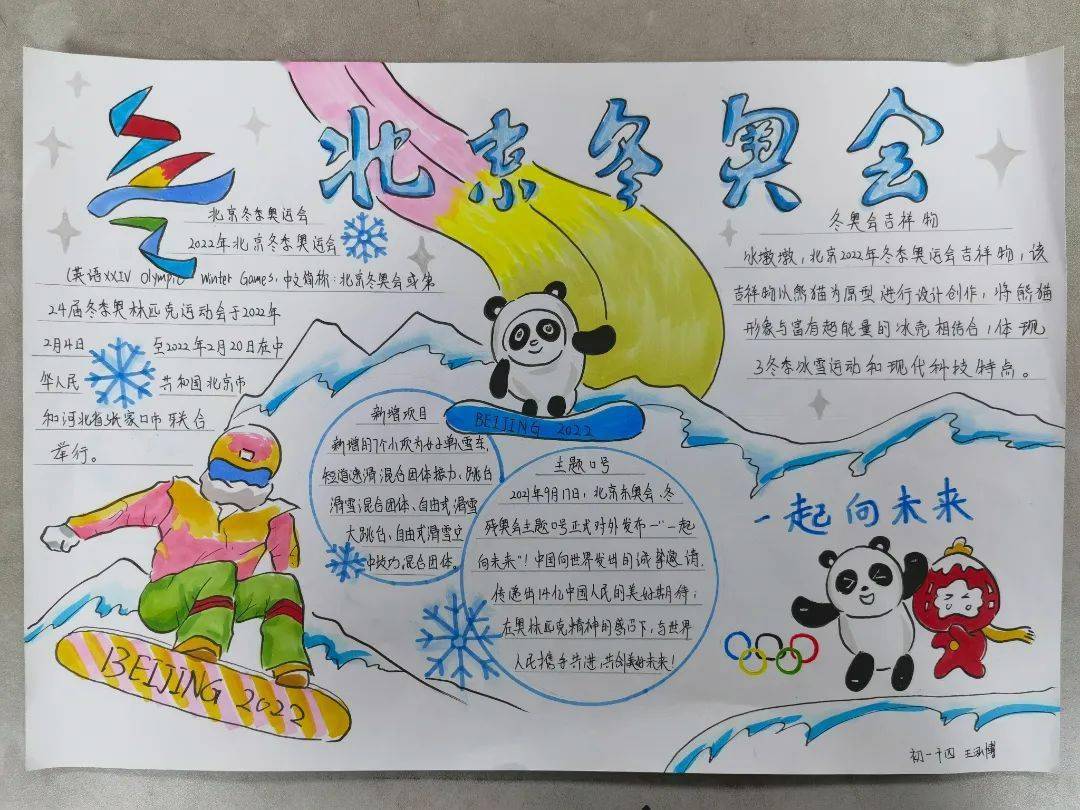 北京冬奥会
北京冬季奥运会
2022年北京冬季奥运会
(英语XXIV Olympic Winter Games,中文简称:北京冬奥会或第
24届冬季奥林匹克运动会于2022年
2月4日 至2022年2月20日在中
华人民 共和国北京市
和河北省张家口市联合
举行。
冬奥会吉祥物
冰墩墩,北京2022年冬季奥运会吉祥物,该
吉祥物以熊猫为原型进行设计创作,将熊猫
形象与富有超能量的冰壳相结合,体现
了冬季冰雪运动和现代科技特点。
BEIJING 2022
新增项目
新增的7个小项为女子单人雪车,
短道速滑混合团体接力、跳台
滑雪混合团体、自由式滑雪
大跳台、自由式滑雪空
中技巧混合团体。
主题口号
2021年9月17日,北京冬奥会、冬
残奥会主题口号正式对外发布一“一起
向未来”!中国向世界发出的诚挚邀请,
传递出14亿中国人民的美好期待:
在奥林匹克精神的感召下,与世界
人民携手共进,共创美好未来!
一起向未来
BEIJING 2022
初一十四 王泓博